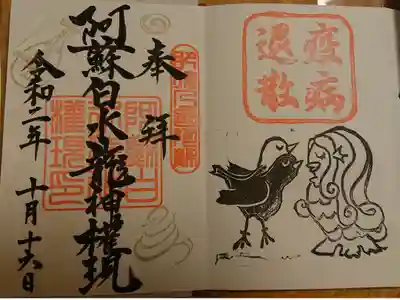 疫病
退散
奉拝
阿蘇白水龍神権現
令和二年 十月十六日